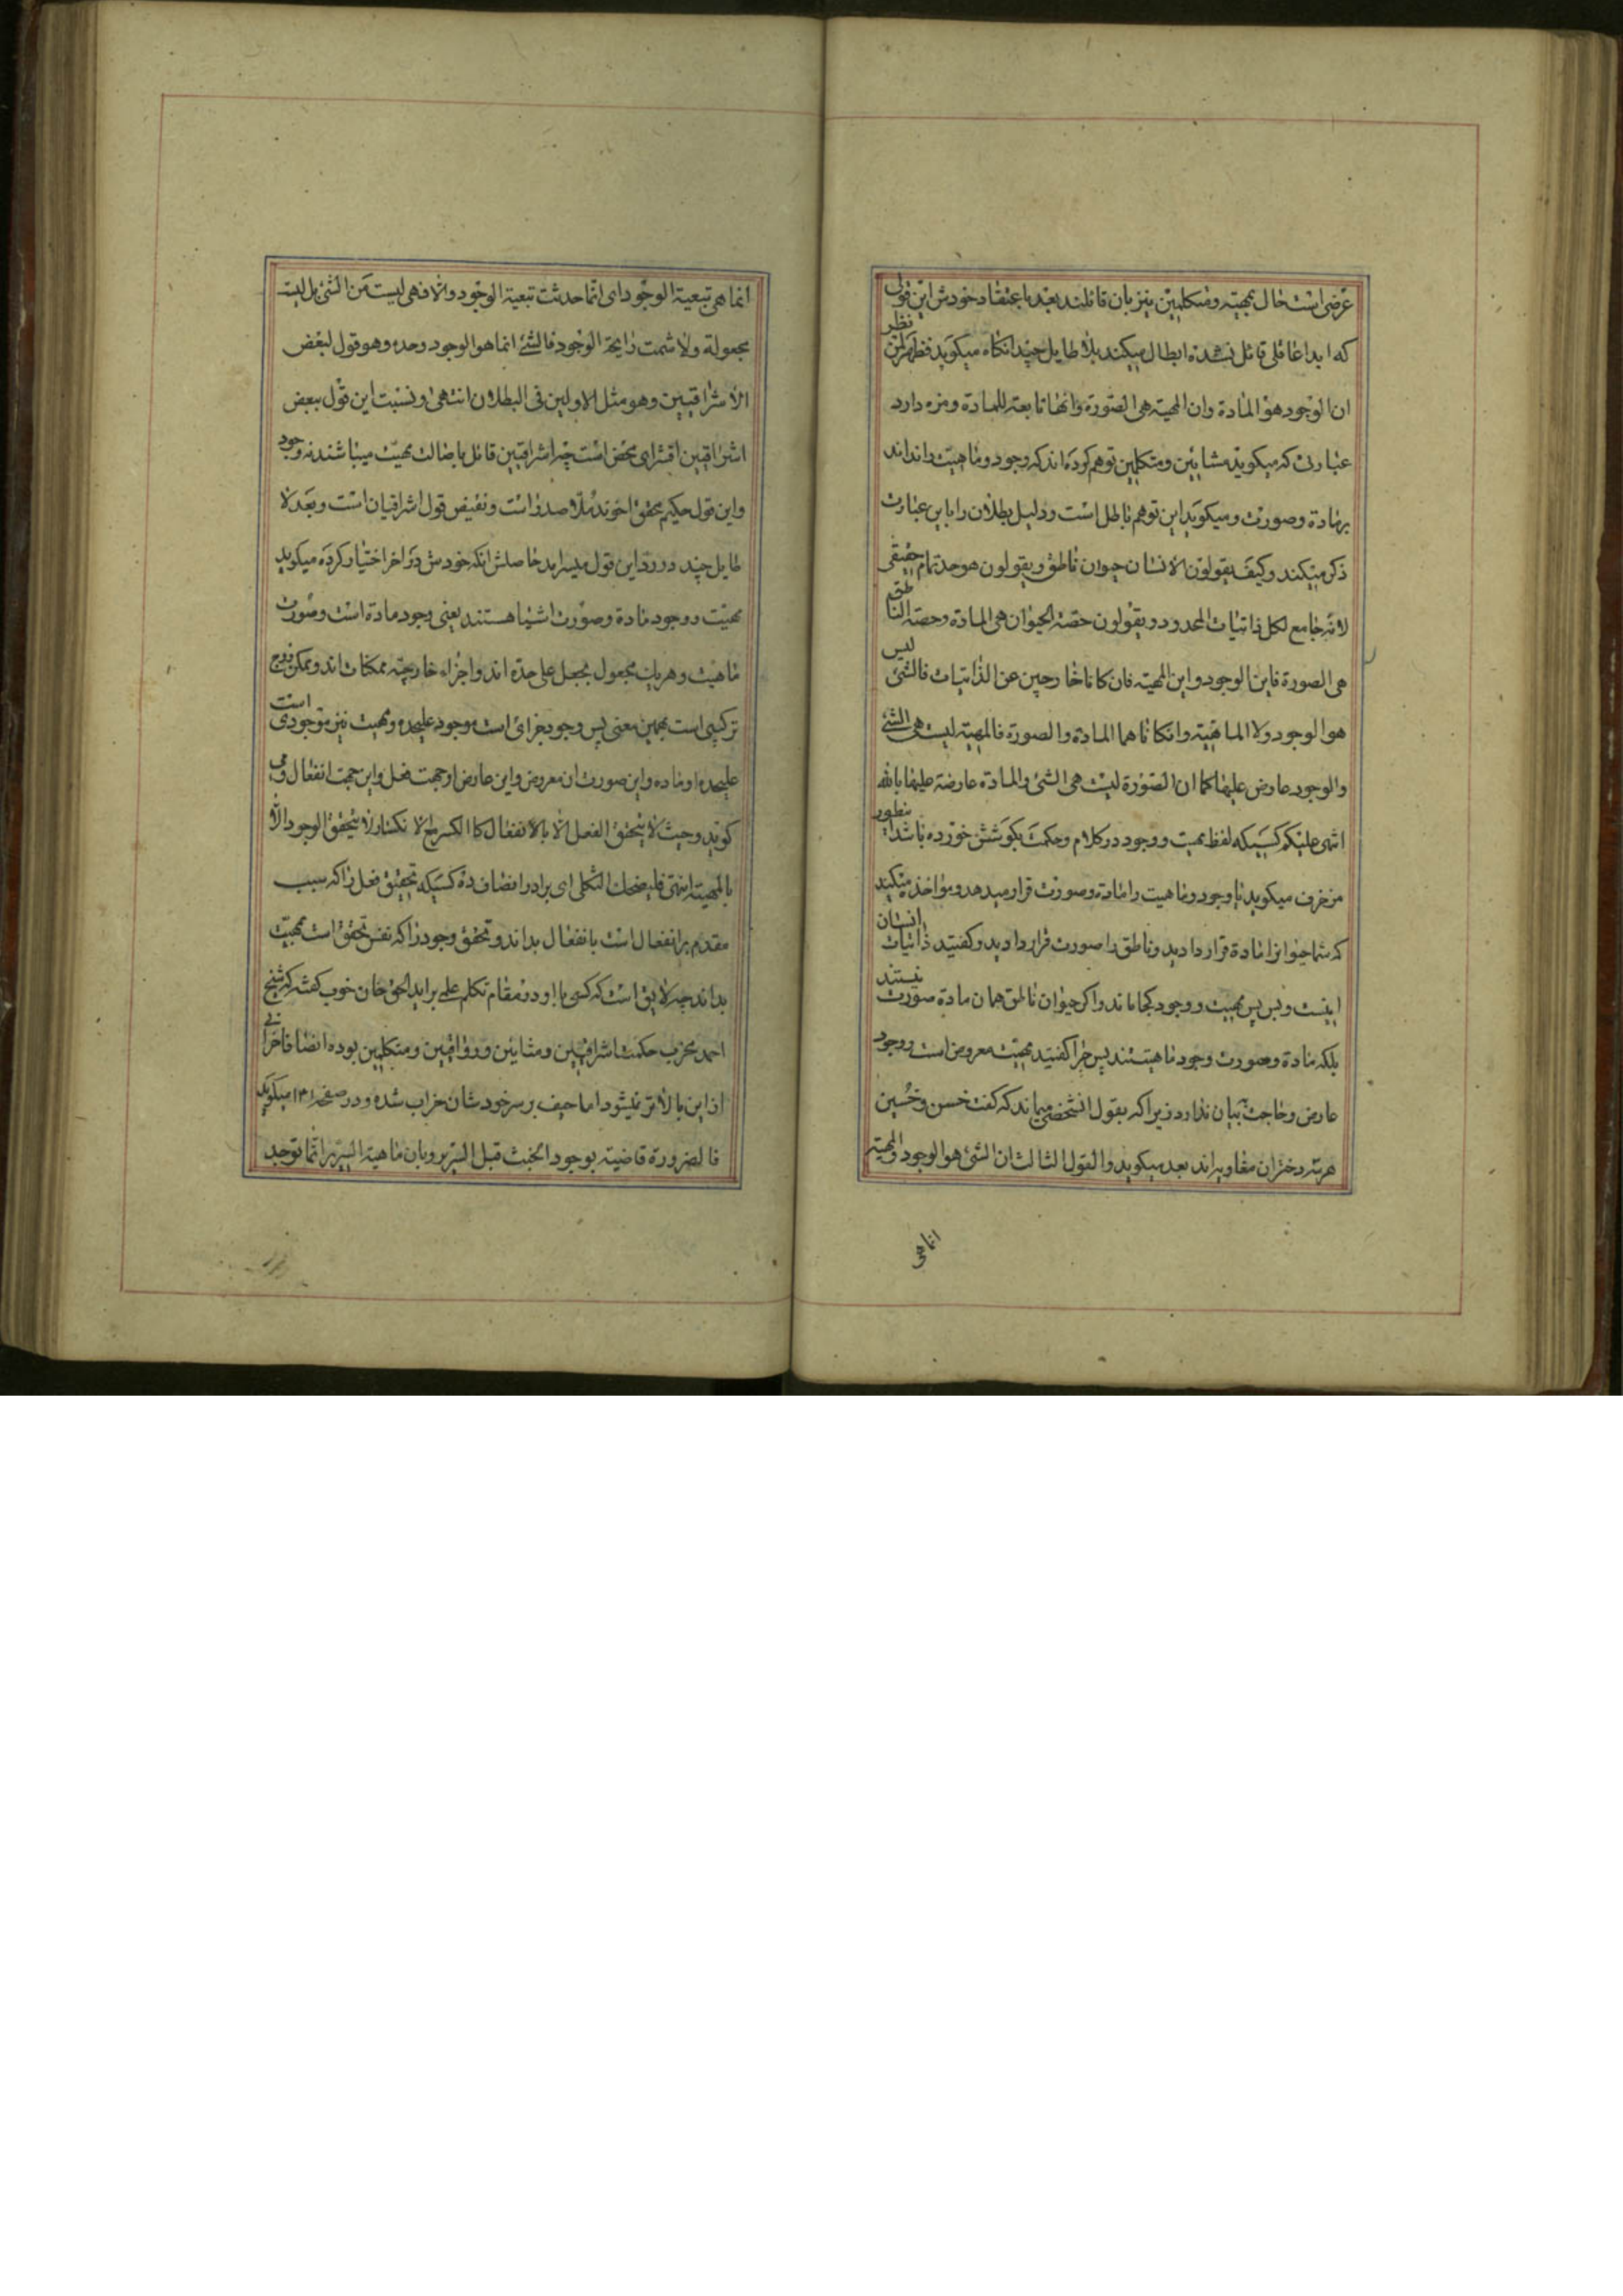 عرضی است حال بمهیة و متکلمین نیز بان قائلند بعد باعتقاد خودش این قولی
که ابدا عاقلی قائل نشده ابطال میکند بلا طایل چند انکاه میکوید فظهر لمن نظر
ان الوجود هو المادة وان المهیة هی الصورة وانها تابعة للمادة ومزه دارد
عبارتی که میکوید مشایین و متکلمین توهم کرده اند که وجود و ماهیت را اند اند
بر ماده وصورت و میکوید این توهم باطل است ودلیل بطلان را باین عبارت
ذکر میکند وکیف یقولون الانسان حیوان ناطق ویقولون هو حد تام حقیقی
لانه جامع لکل ذاتیات المحدود ویقولون حصة الحیوان هی المادة وحصة الناطق
هی الصورة فاین الوجود واین المهیة فان کانا خارجین عن الذاتیات فالشئ لیس
هو الوجود ولا الماهیة وان کانا هما المادة والصورة فالمهیة لیست هی الشئ
والوجود عارض علیها کما ان الصورة لیست هی الشئ والمادة عارضة علیها بالله
انتهی علیکم کسیکه لفظ مهیت ووجود در کلام وحکمت بکوشش خورده باشد اینطور
مزخرف میکوید یا وجود وماهیت را ماده وصورت قرار میدهد ومؤاخذه میکند
که شما حیوانرا ماده قرار دادید وناطق را صورت قرار دادید وکفتید ذاتیات انسان
اینست وبس پس مهیت ووجود کجا ماند واکر حیوان ناطق همان ماده صورت نیستند
بلکه ماده وصورت وجود ماهیتند پس چرا کفتید مهیت معروض است ووجود
عارض وحاجت ببیان ندارد زیرا که بقول انشخص میماند که کفت خسن وخسین
هر سه دختران مغاویه اند بعد میکوید والقول الثالث ان الشئ هو الوجود والمهیة
انما هی
انما هی تبعیة الوجود ای انما حدثت تبعیة الوجود والا فهی لیست من الشئ بل لیست
مجعولة ولا شمت رایحة الوجود فالشئ انما هو الوجود وحده وهو قول لبعض
الاشراقیین وهو مثل الاولین فی البطلان انتهی ونسبت این قول ببعض
اشراقیین افترای محض است چه اشراقیین قائل باصالت مهیت میباشند نه وجود
واین قول حکیم محقق اخوند ملا صدرا است ونقیض قول اشراقیان است وبعد لا
طایل چند در رد این قول میسراید حاصلش انکه خودش در اخر اختیار کرده میکوید
مهیت ووجود ماده وصورت اشیا هستند یعنی وجود ماده است وصورت
ماهیت وهر یک مجعول بجعل علی حده اند واجزاء خارجیه ممکنات اند وممکن زوج
ترکیبی است بهمین معنی پس وجود جزائی است موجود علیحده ومهیت نیز موجودی است
علیحده او ماده واین صورت ان معروض واین عارض او جهت فعل واین جهت انفعال ومی
کوید وحیث لا یتحقق الفعل الا بالانفعال کالکسر الانکسار لا یتحقق الوجود الا
بالمهیة انتهی فلیضحک الثکلی ای برادر انصاف ده کسیکه تحقیق فعل را که سبب
مقدم بر انفعال است بانفعال بداند وتحقق وجود را که نفس تحقق است بمهیت
بداند چه لایق است که کسی با او در مقام تکلم علمی براید الحق خان خوب کفته که شیخ
احمد مخرب حکمت اشراقیین ومشایین ورواقیین ومتکلمین بوده انصافا خرابی
از این بالاتر نمیشود اما حیف بر سر خودشان خراب شده ودر صفحه ۱۳۱ میکوید
فالضرورة قاضیة بوجود الخشب قبل السریر وبان ماهیة السریر انما توجد